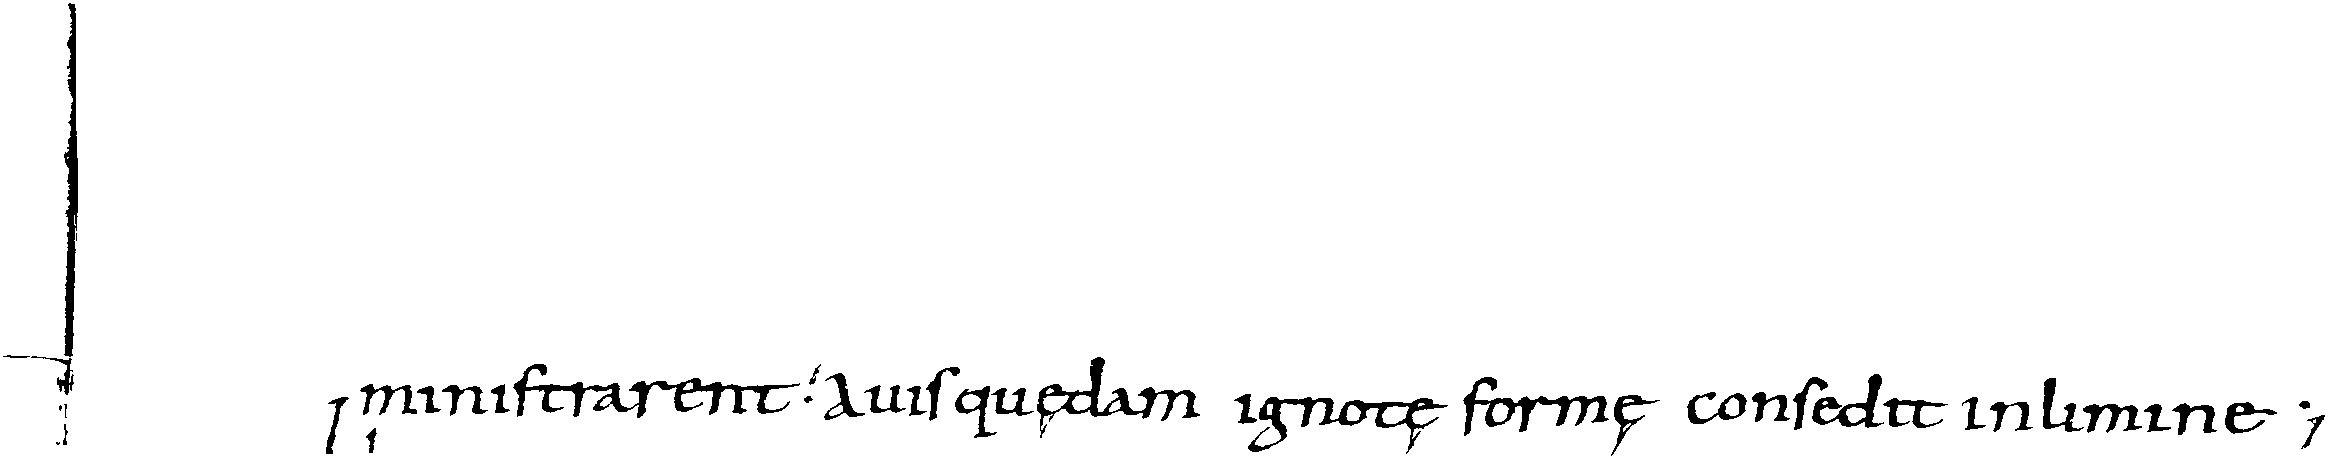 ministrarent. Auis quędam ignotę formę consedit in limine ;